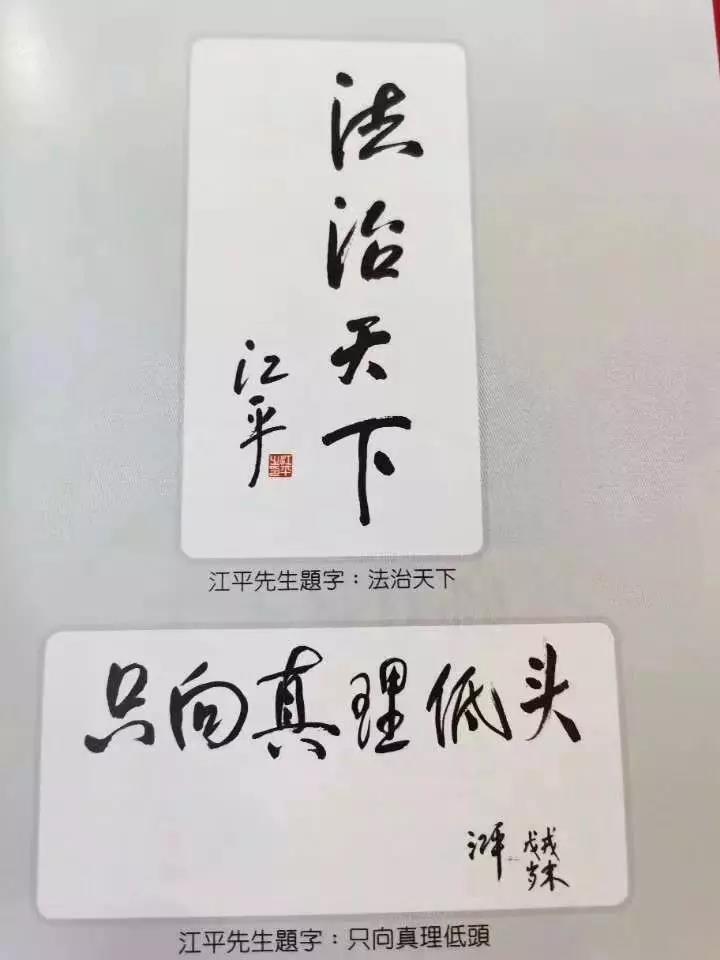 法治天下
江平
江平先生題字：法治天下
只向真理低头
江平
戊戌
岁末
江平先生題字：只向真理低頭